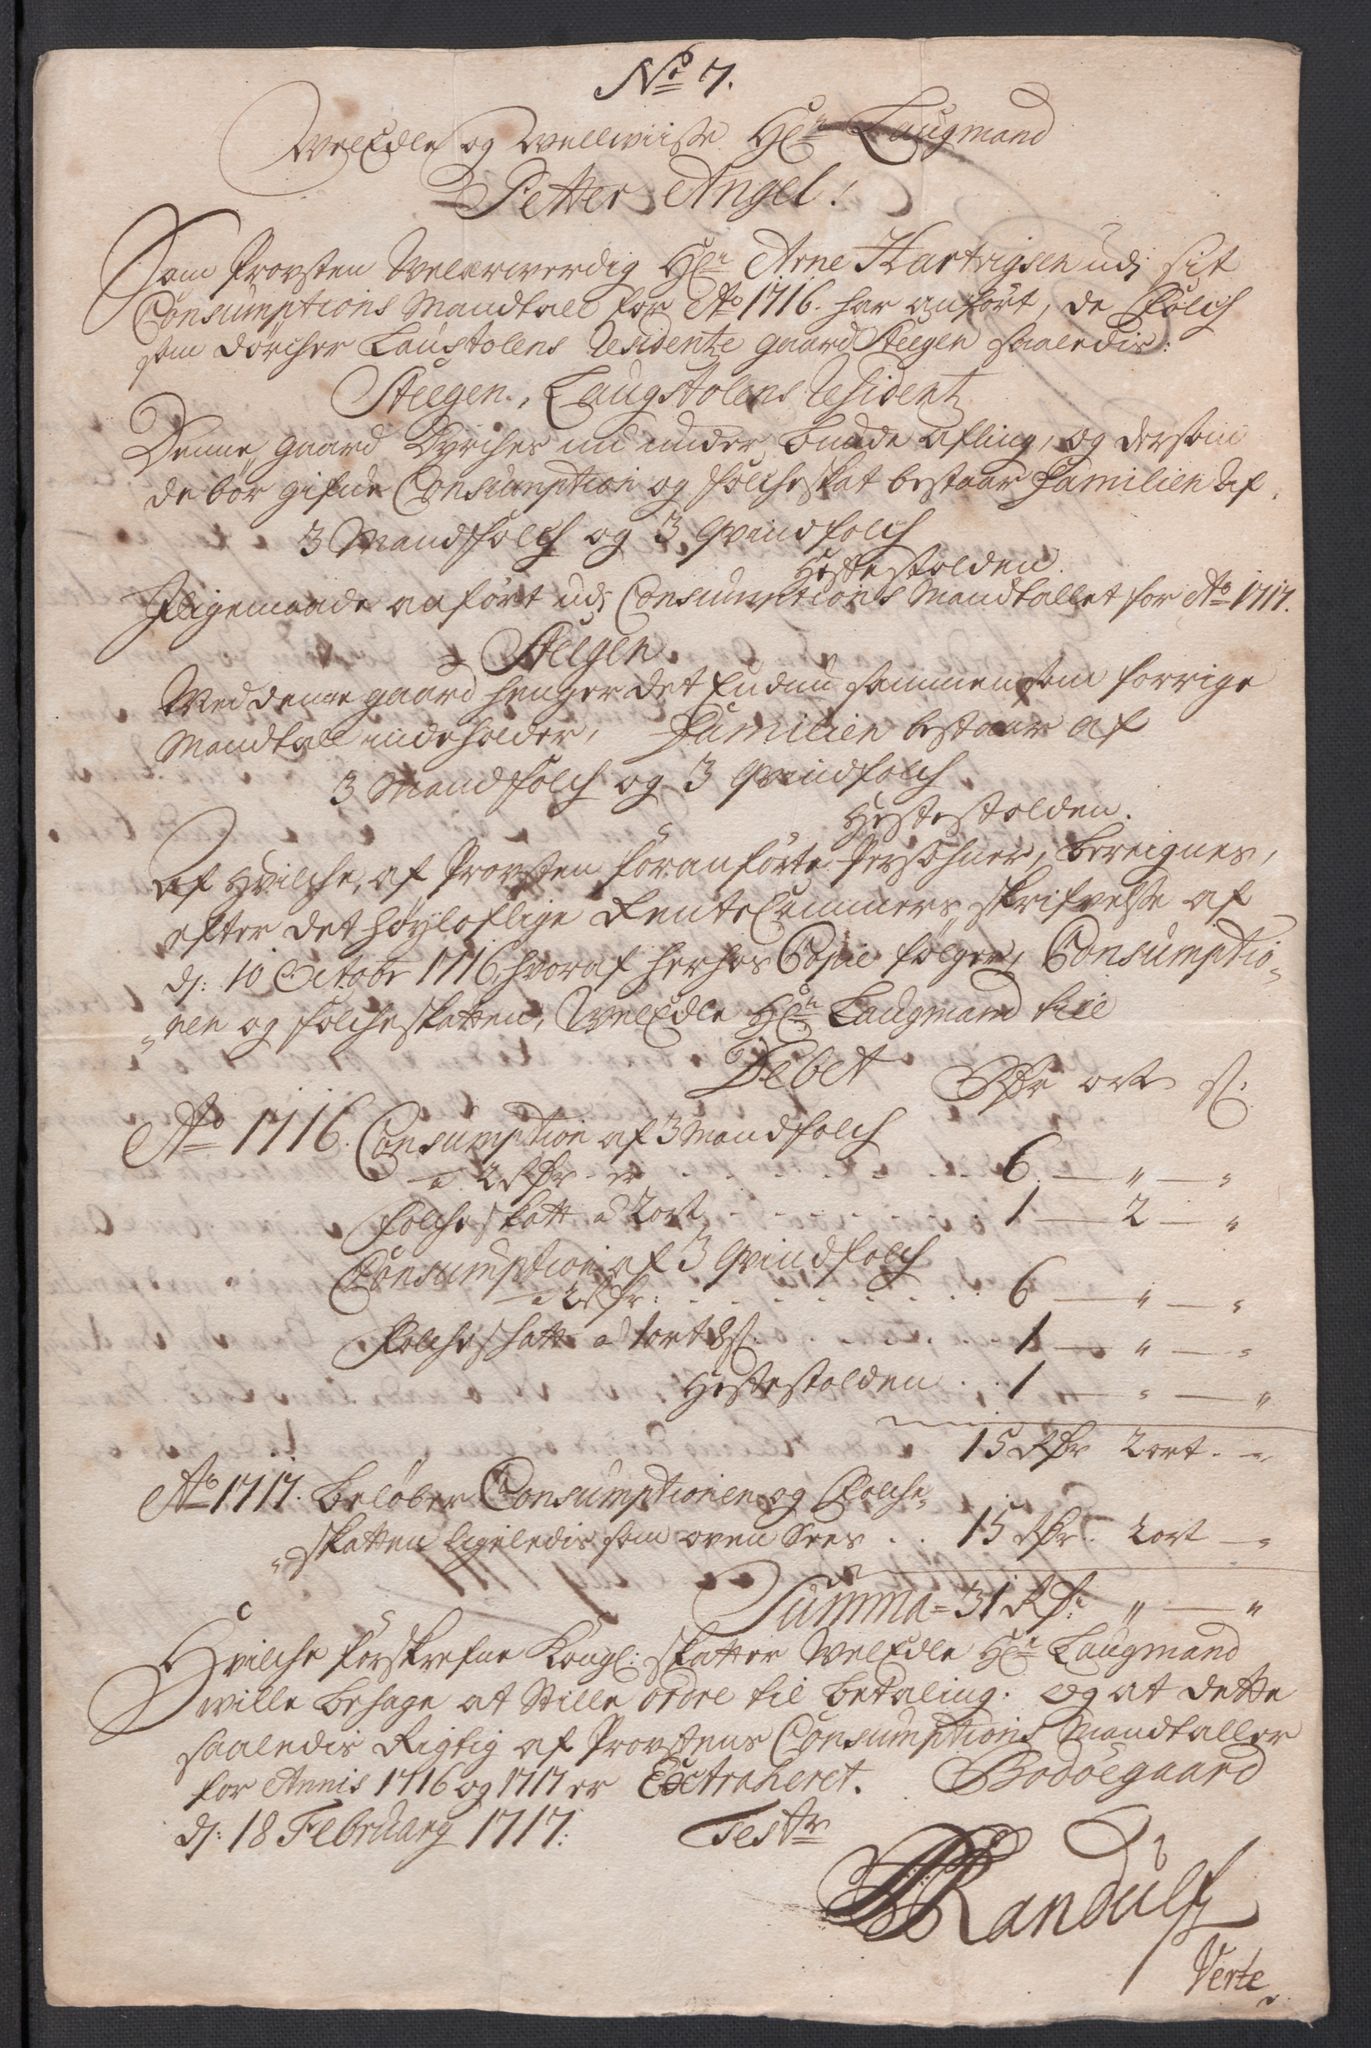 No 7.
WelEdle og Wellwiise Hr: Laugmand
Petter Angel!
Som Provsten Welærwerdig Hr: Arne Hartvigsen udj sit
Consumptions Mandtall for Ao 1716. har anført, de Folch
som dörcher Laustolens Residentz gaard Steegen saaledis:
Steegen, Laugstolens Residentz
Denne gaard Dyrches nu under buude afling, og dersom
de bör gifve Consumption og Folcheskat bestaar Familien Af,
3 Mandfolch og 3 Qvindfolch
Hestestolden.
Jligemaade anfört udj Consumptions Mandtallet for Ao 1717.
Steegen
Med denne gaard henger det Endnu sammen som forrige
Mandtall indeholder, Familien bestaar af
3 Mandfolch og 3 Qvindfolch
Hestestolden.
Af Hvilche, af Provsten föranförte Persohner, bereignes,
efter det höyloflige RenteCammers skrifvelse af
d: 10 October 1716 hvoraf herhos Copie fölger, Consumptio-
nen og Folcheskatten, WelEdle Hr: Laugmand til
Debet Rdr ort s:
Ao 1716. Consumption af 3 Mandfolch
a 2 Rdr er . . . 6 — " — "
Folcheskatt a 2 ort . . . 1 — 2 — "
Consumption af 3 Qvindfolch
a 2 Rdr: . . . 6 — " — "
Folcheskatt a 1 ort 8 s: . . 1 — " — "
Hestestolden . . 1 — " — "
15 Rdr 2 ort — "
Ao 1717. beløber Consumptionen og Folche-
skatten ligeledis som oven Sees . . 15 Rdr. 2 ort — "
Summa = 31 Rdr: " — "
Hvilche förskrefne Kongl: skatter WelEdle Hr: Laugmand
wille behage at Stille ordre til betaling. Og at dette
saaledis Rigtig af Provstens Consumptions Mandtaller
for Annis 1716 og 1717 er Extraheret. Bodöegaard
d: 18 February 1717: Test
Randulf
Verte